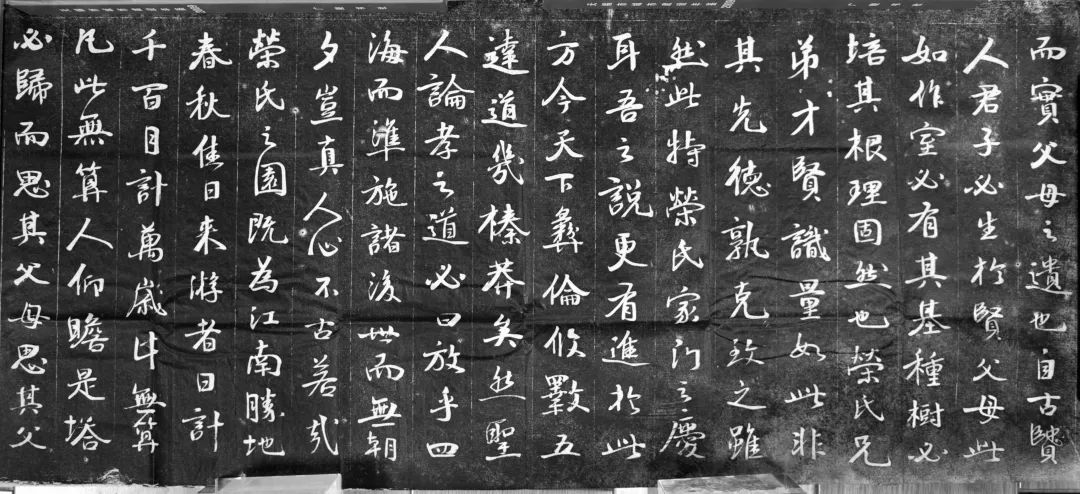 而實父母之遺也自古賢
人君子必生於賢父母此
如作室必有其基種樹必
培其根理固然也榮氏兄
弟才賢識量如此非
其先德孰克致之雖
然此特榮氏家門之慶
耳吾之說更有進於此
方今天下彝倫攸斁五
達道幾榛莽矣然聖
人論孝之道必曰放乎四
海而準施諸後世而無朝
夕豈真人心不古若哉
榮氏之園既為江南勝地
春秋佳日來游者日計
千百月計萬歲計無算
凡此無算人仰瞻是塔
必歸而思其父母思其父